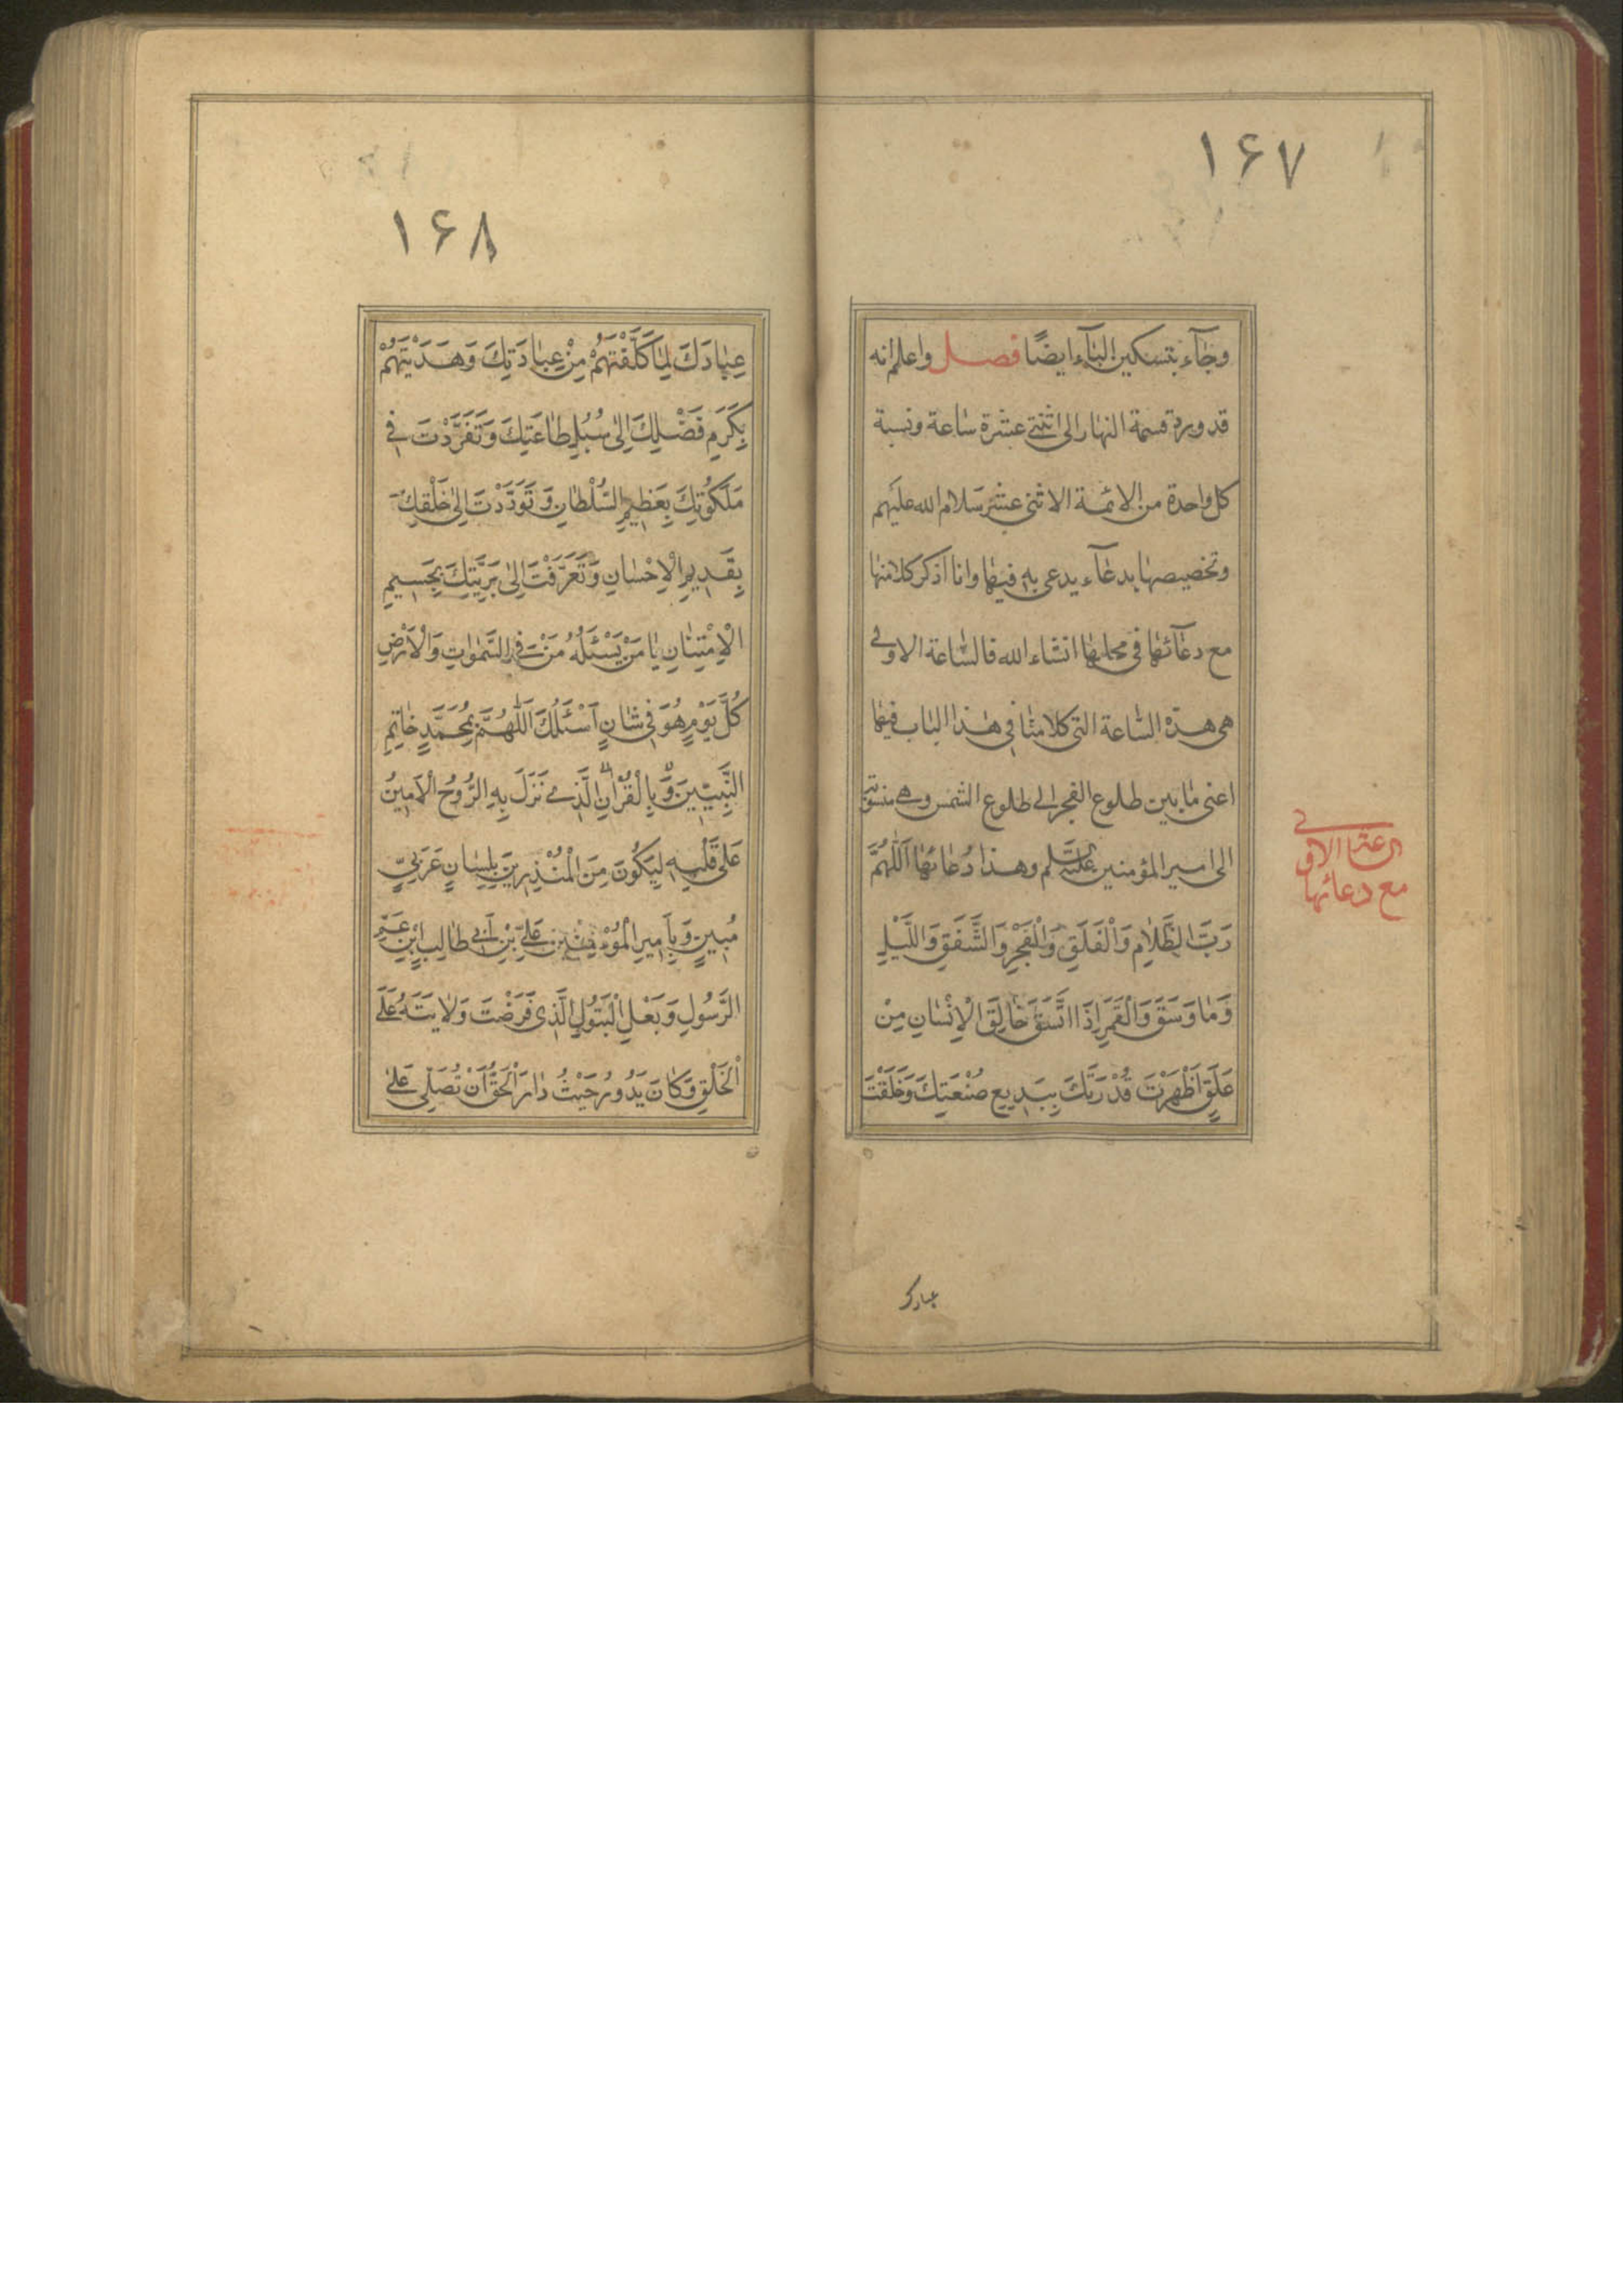 ۱۶۷
وجاء بتسكين الباء ايضًا فصل واعلم انه
قد ورد قسمة النهار الى اثنتى عشرة ساعة ونسبة
كل واحدة من الائمة الاثنى عشر سلام الله عليهم
وتخصيصها بدعاء يدعى به فيها وانا اذكر كلا منها
مع دعائها فى محلها انشاء الله فالساعة الاولى
هى هذه الساعة التى كلامنا فى هذا الباب فيها
اعنى ما بين طلوع الفجر الى طلوع الشمس وهى منسوبة
الى امير المؤمنين عليه السلم وهذا دُعائها اَللّٰهُمَّ
رَبَّ الظَّلَامِ وَالْفَلَقِ وَالْفَجْرِ وَالشَّفَقِ وَاللَّيْلِ
وَمَا وَسَقَ وَالْقَمَرِ اِذَا اتَّسَقَ خَالِقَ الْاِنْسَانِ مِنْ
عَلَقٍ اَظْهَرْتَ قُدْرَتَكَ بِبَدِيعِ صُنْعَتِكَ وَخَلَقْتَ
الساعة الاولى
مع دعائها
عبادك
۱۶۸
عِبَادَكَ لِمَا كَلَّفْتَهُمْ مِنْ عِبَادَتِكَ وَهَدَيْتَهُمْ
بِكَرَمِ فَضْلِكَ اِلٰى سُبُلِ طَاعَتِكَ وَتَفَرَّدْتَ فِى
مَلَكُوتِكَ بِعَظِيمِ السُّلْطَانِ وَتَوَدَّدْتَ اِلٰى خَلْقِكَ
بِقَدِيمِ الْاِحْسَانِ وَتَعَرَّفْتَ اِلٰى بَرِيَّتِكَ بِجَسِيمِ
الْاِمْتِنَانِ يَا مَنْ يَسْئَلُهُ مَنْ فِى السَّمٰوَاتِ وَالْاَرْضِ
كُلَّ يَوْمٍ هُوَ فِى شَانٍ اَسْئَلُكَ اَللّٰهُمَّ بِمُحَمَّدٍ خَاتِمِ
النَّبِيّينَ وَبِالْقُرْاٰنِ الَّذِى نَزَلَ بِهِ الرُّوحُ الْاَمِينُ
عَلٰى قَلْبِهِ لِيَكُونَ مِنَ الْمُنْذِرِينَ بِلِسَانٍ عَرَبِيٍّ
مُبِينٍ وَبِاَمِيرِ الْمُؤْمِنِينَ عَلِيِّ بْنِ اَبِى طَالِبٍ ابْنِ عَمِّ
الرَّسُولِ وَبَعْلِ الْبَتُولِ الَّذِى فَرَضْتَ وَلَايَتَهُ عَلَى
الْخَلْقِ وَكَانَ يَدُورُ حَيْثُ دَارَ الْحَقُّ اَنْ تُصَلِّىَ عَلٰى